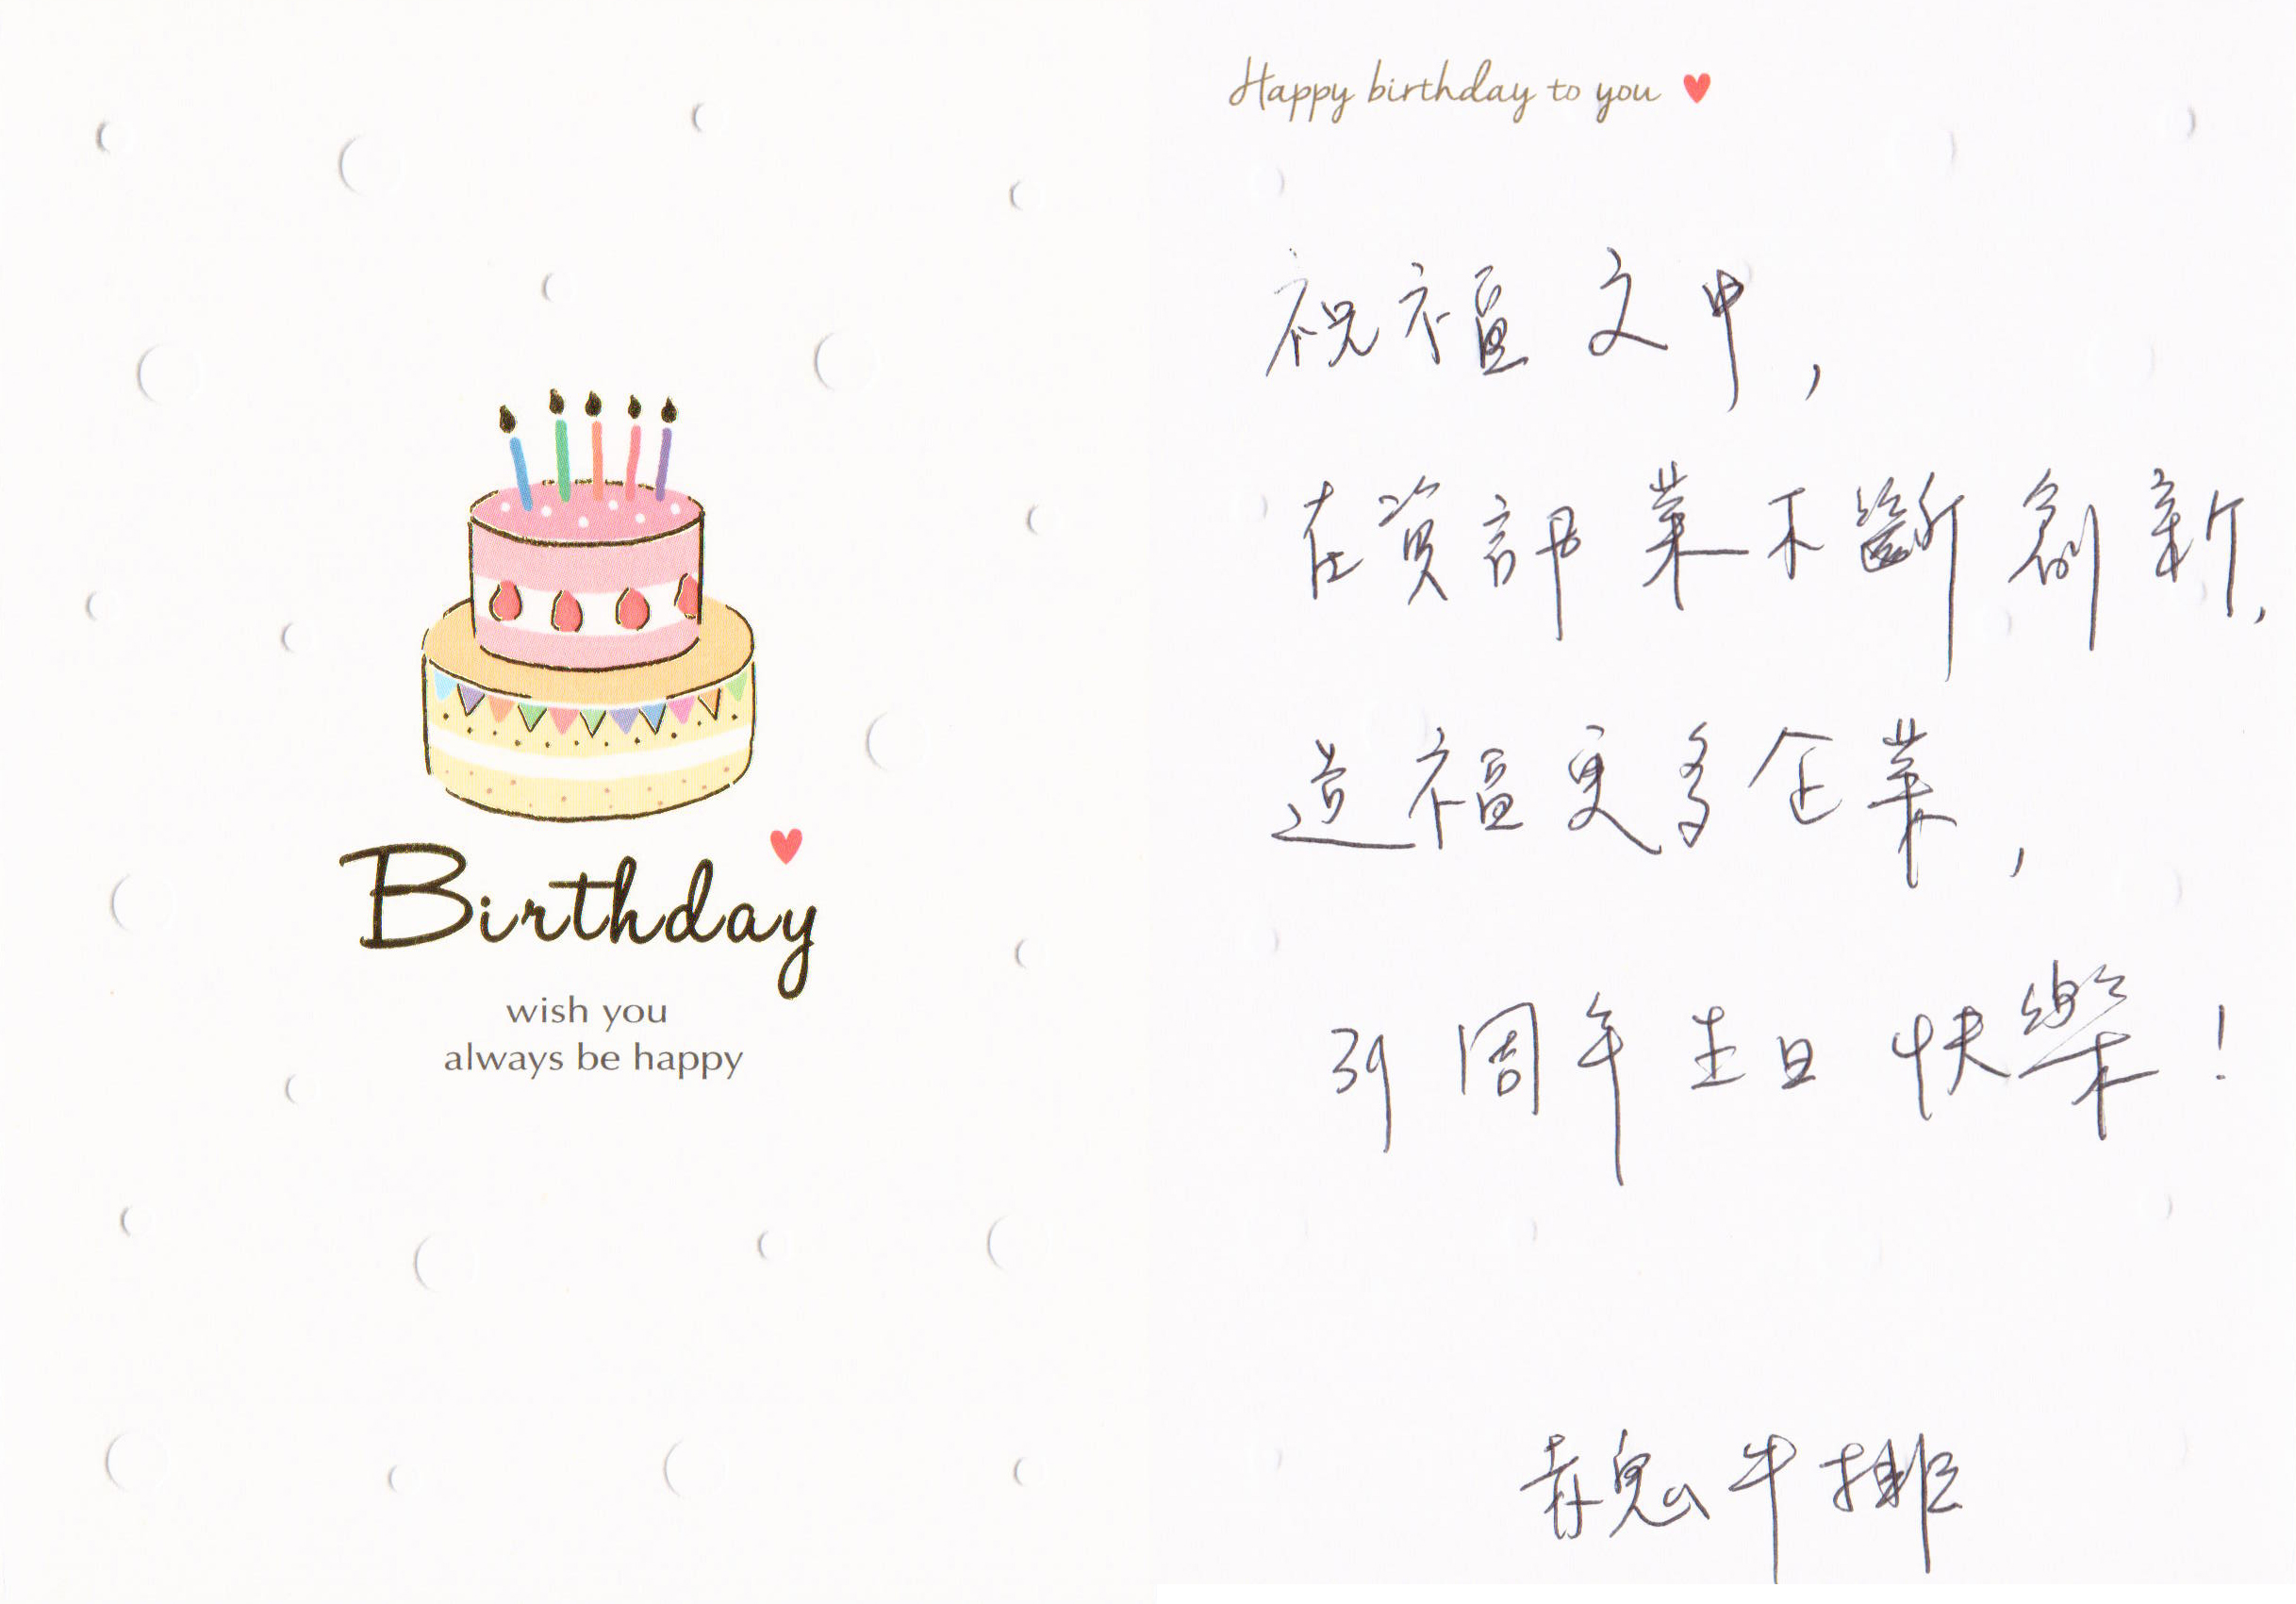 Birthday
wish you
always be happy
Happy birthday to you
祝福文中,
在資訊業不斷創新,
造福更多企業,
39周年生日快樂!
赤鬼牛排